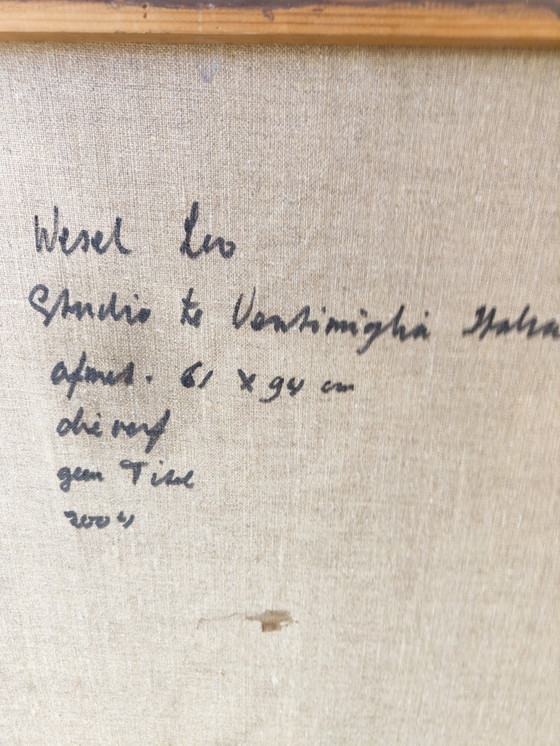 Wesel Leo
Studio te Ventimiglia Italia
afmet. 61 x 94 cm
olieverf
geen Titel
2004